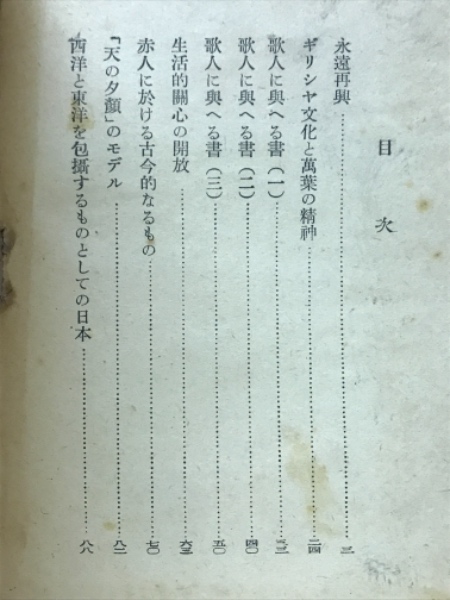 目次
永遠再興……三
ギリシヤ文化と萬葉の精神……二四
歌人に與へる書(一)……三二
歌人に與へる書(二)……四〇
歌人に與へる書(三)……五〇
生活的關心の開放……六三
赤人に於ける古今的なるもの……七〇
「天の夕顏」のモデル……八二
西洋と東洋を包攝するものとしての日本……八八